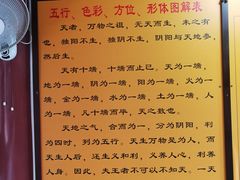 五行、色彩、方位、形体图解表
天者，万物之祖，无天而生，未之有
也，独阳不生，独阴不生，阴阳与天地参，
然后生。
天有十端，十端而止已，天为一端，
地为一端，阴为一端，阳为一端，火为一
端，金为一端，木为一端，水为一端，土为一端，人
为一端，凡十端而毕，天之数也。
天地之气，合而为一，分为阴阳，判
为四时，列为五行，天生万物是为人，而
天生人后，还生义和利，义养人心，利养
人身。因此，夫王者不可以不知天。一天